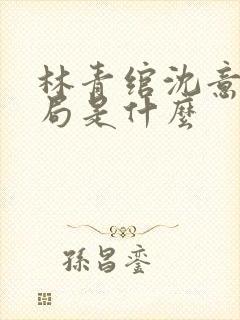 林青綰沈意
局是什麼
孫昌鑾